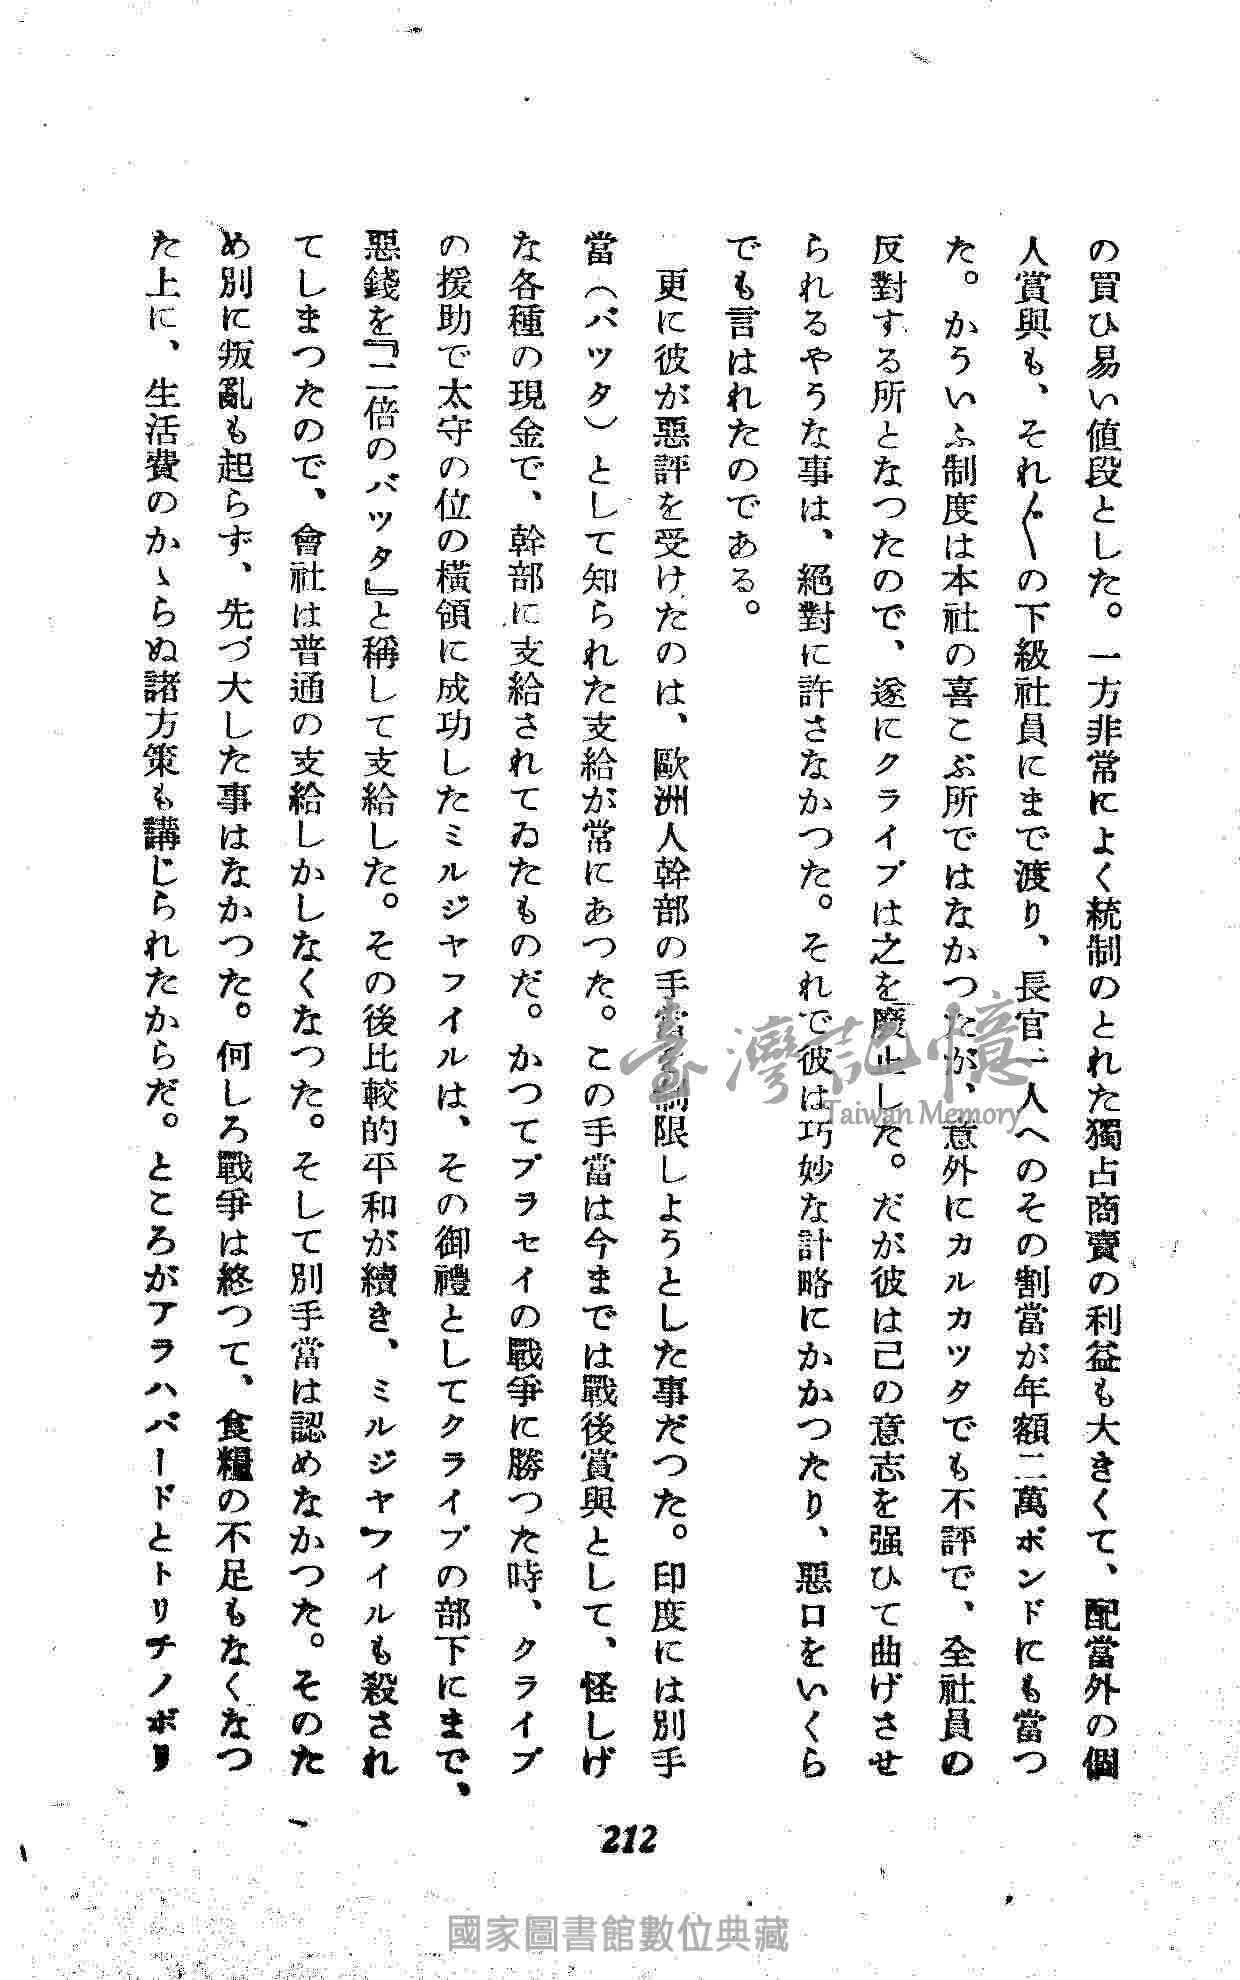 の買ひ易い値段とした。一方非常によく統制のとれた獨占商賣の利益も大きくて、配當外の個
人賞與も、それ〴〵の下級社員にまで渡り、長官一人へのその割當が年額二萬ポンドにも當つ
た。かういふ制度は本社の喜こぶ所ではなかつたが、意外にカルカツタでも不評で、全社員の
反對する所となつたので、遂にクライブは之を廢止した。だが彼は己の意志を强ひて曲げさせ
られるやうな事は、絕對に許さなかつた。それで彼は巧妙な計略にかかつたり、惡口をいくら
でも言はれたのである。
更に彼が惡評を受けたのは、歐洲人幹部の手當を制限しようとした事だつた。印度には別手
當（バツタ）として知られた支給が常にあつた。この手當は今までは戰後賞與として、怪しげ
な各種の現金で、幹部に支給されてゐたものだ。かつてプラセイの戰爭に勝つた時、クライブ
の援助で太守の位の橫領に成功したミルジヤフイルは、その御禮としてクライブの部下にまで、
惡錢を『二倍のバツタ』と稱して支給した。その後比較的平和が續き、ミルジヤフイルも殺され
てしまつたので、會社は普通の支給しかしなくなつた。そして別手當は認めなかつた。そのた
め別に叛亂も起らず、先づ大した事はなかつた。何しろ戰爭は終つて、食糧の不足もなくなつ
た上に、生活費のかゝらぬ諸方策も講じられたからだ。ところがアラハバードとトリチノポリ
212
臺灣記憶
Taiwan Memory
國家圖書館數位典藏